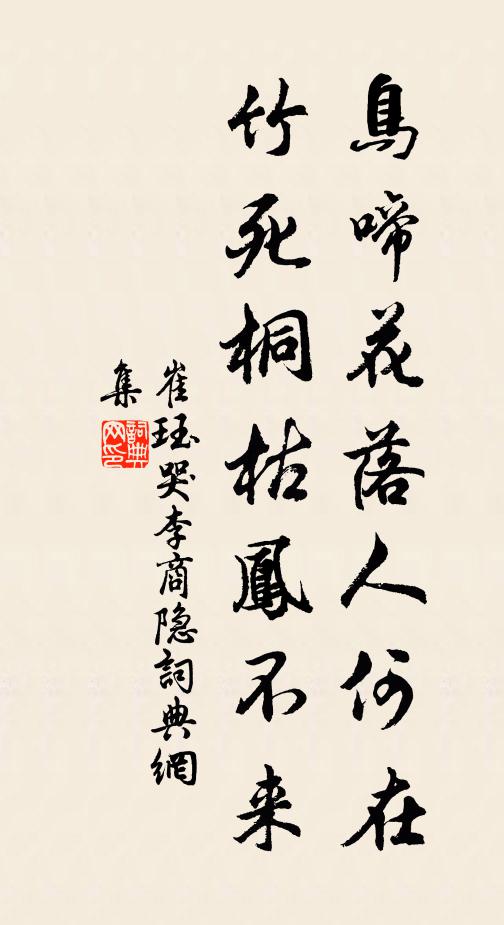 鳥啼花落人何在
竹死桐枯鳳不来
崔珏哭李商隐詞典網
集
詞典
网印